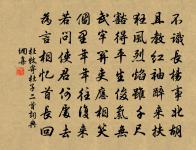 不識長楊事北胡
且教紅袖醉來扶
狂風烈焰雖千尺
豁得平生俊氣無
武牢關吏應相笑
個里年年往復來
若問使君何處去
為言相憶首長回
杜牧寄杜子二首詞典
網集